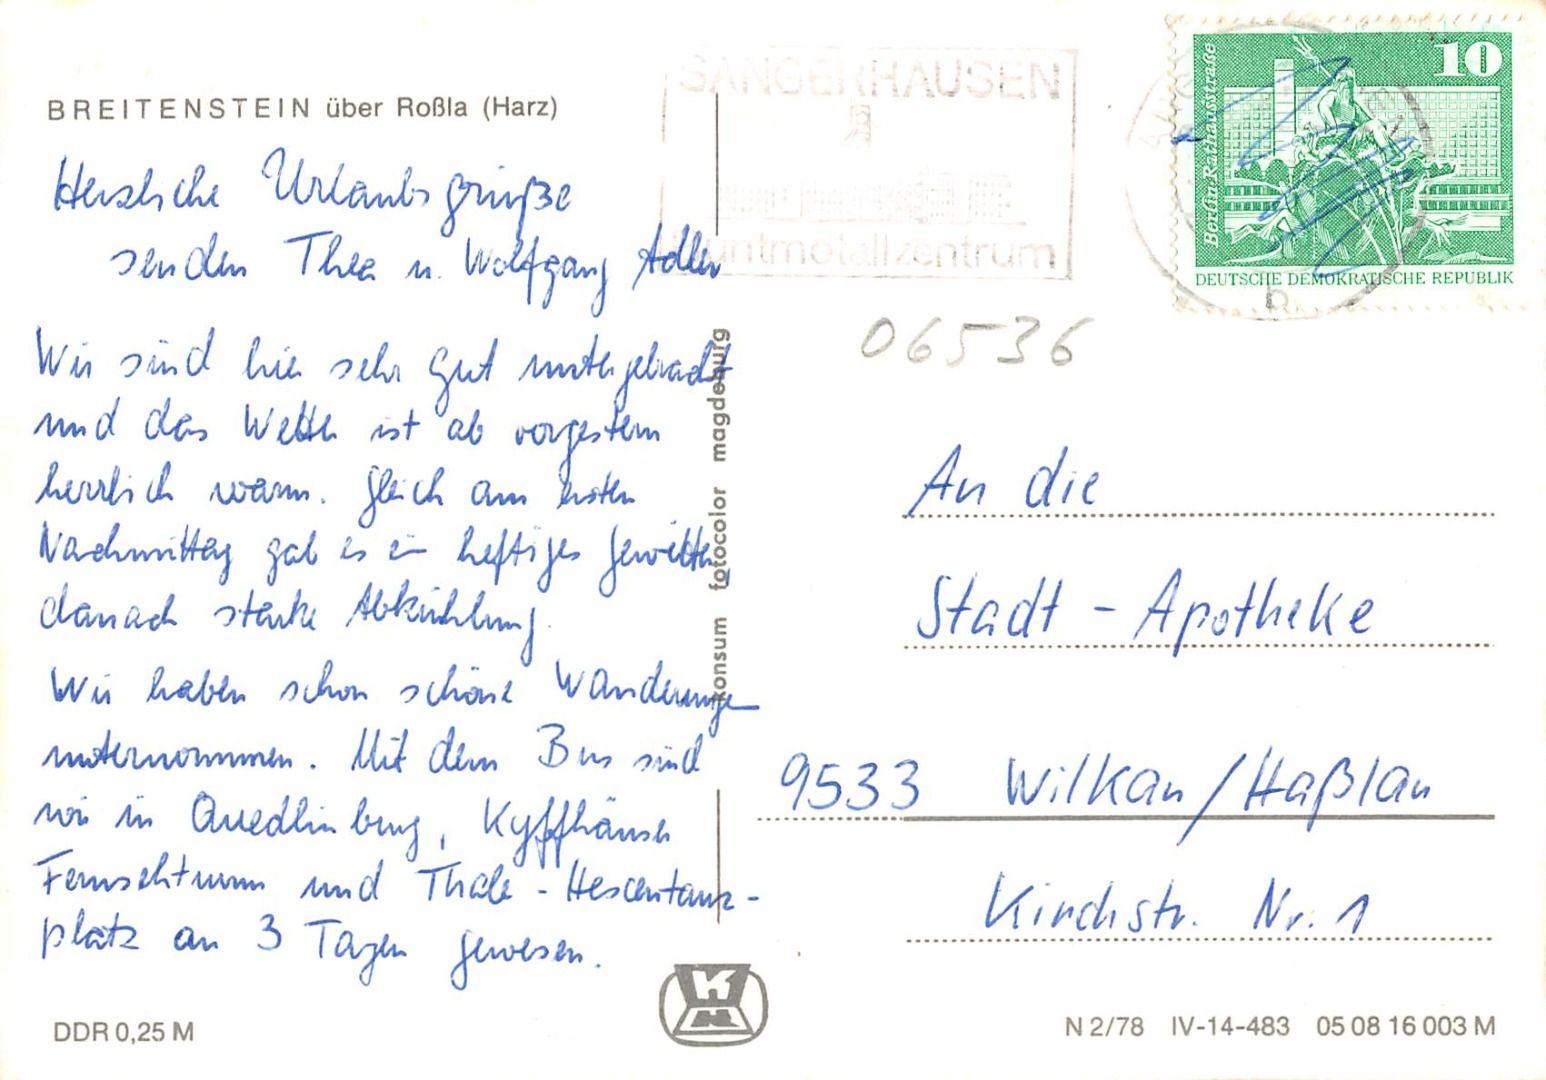 BREITENSTEIN über Roßla (Harz)
Herzliche Urlaubsgrüße
senden Thea u. Wolfgang Adler
Wir sind hier sehr gut untergebracht
und das Wetter ist ab vorgestern
herrlich warm. Gleich am ersten
Nachmittag gab es ein heftiges Gewitter,
danach starke Abkühlung.
Wir haben schon schöne Wanderungen
unternommen. Mit dem Bus sind
wir in Quedlinburg, Kyffhäuser
Fernsehturm und Thale - Hexentanz-
platz an 3 Tagen gewesen.
DDR 0,25 M
konsum fotocolor magdeburg
SANGERHAUSEN
Buntmetallzentrum
10
Berlin-Rathausstraße
DEUTSCHE DEMOKRATISCHE REPUBLIK
b
06536
An die
Stadt - Apotheke
9533 Wilkau/Haßlau
Kirchstr. Nr. 1
N 2/78 IV-14-483 05 08 16 003 M